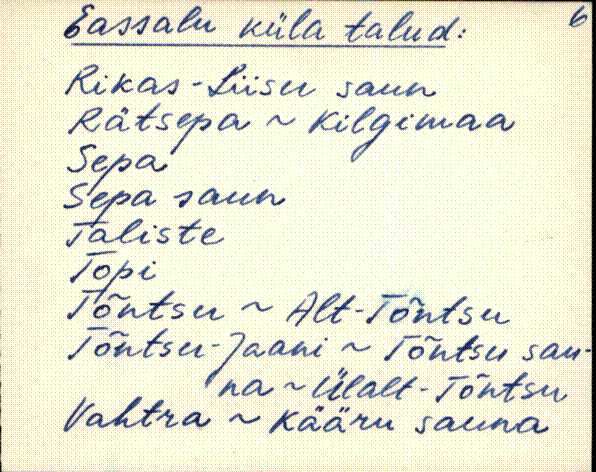 6
Eassalu küla talud:
Rikas-Liisu saun
Rätsepa ~ Kilgimaa
Sepa
Sepa saun
Taliste
Topi
Tõntsu ~ Alt-Tõntsu
Tõntsu-Jaani ~ Tõntsu sau-
na ~ Ülalt-Tõntsu
Vahtra ~ Kääru sauna